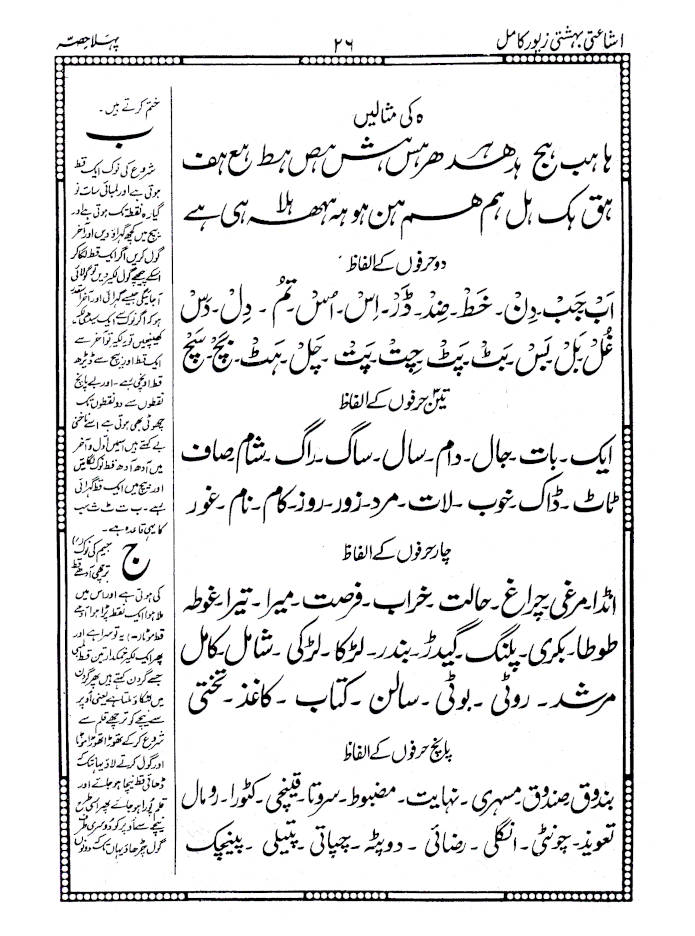 اشاعتی بہشتی زیور کامل
۲۶
پہلا حصہ
ہ کی مثالیں
ہا ہب ہج ہد ھد ہر ھر ہس ہش ہص ہط ہع ہف
ہق ہک ہل ہم ھم ہن ہو ہہ ہھہ ہلا ہی ہے
دو حرفوں کے الفاظ
اَب جَب۔ دِن۔ خَط۔ ضِد۔ ڈَر۔ اِس۔ اُس۔ تُم۔ دِل۔ دَس
غُل۔ بَل۔ بَس۔ بَٹ۔ پَٹ۔ چِت۔ پَت۔ چَل۔ ہَٹ۔ بَچ۔ سَچ
تین حرفوں کے الفاظ
ایک۔ بات۔ جال۔ دام۔ سال۔ ساگ۔ راگ۔ شام۔ صاف
ٹاٹ۔ ڈاک۔ خوب۔ لات۔ مرد۔ زور۔ روز۔ کام۔ نام۔ غور
چار حرفوں کے الفاظ
انڈا۔ مرغی۔ چراغ۔ حالت۔ خراب۔ فرصت۔ میرا۔ تیرا۔ غوطہ
طوطا۔ بکری۔ پلنگ۔ گیدڑ۔ بندر۔ لڑکا۔ لڑکی۔ شامل۔ کامل
مرشد۔ روٹی۔ بوٹی۔ سالن۔ کتاب۔ کاغذ۔ تختی
پانچ حرفوں کے الفاظ
بندوق۔ صندوق۔ مسہری۔ نہایت۔ مضبوط۔ سروتا۔ قینچی۔ کٹورا۔ رومال
تعویذ۔ چونٹی۔ انگلی۔ رضائی۔ دوپٹہ۔ چپاتی۔ پتیلی۔ پیچک
ختم کرتے ہیں۔
ب
شروع کی نوک ایک قط
ہوتی ہے اور لمبائی سات نو
گیارہ نقطہ تک ہوتی ہے اور
بیچ میں کچھ گہراؤ دیں اور آخر
گول کریں اگر ایک قط لگا کر
اسکے پیچھے گول لکیر دیں تو گولائی
آجائیگی جیسے گہرائی اور آخر اسقدر
ہو کہ اگر نوک سے ایک سیدھی لکیر
کھینچیں تو یہ لکیر تو آخر سے
ایک قط اور بیچ سے ڈیڑھ
قط اونچی رہے۔ اور بے پانچ
نقطوں سے دو نقطوں تک
چھوٹی بھی ہوتی ہے اسے ناخنی
بے کہتے ہیں اسمیں اول و آخر
میں آدھ آدھ قط نوک لگائیں
اور بیچ میں ایک قط گہرائی
رہے۔ ب ت ٹ ث سب
کا یہی قاعدہ ہے۔
ج جیم کی نوک
ترچھی آدھے قط
کی ہوتی ہے اور اس میں
ملا ہوا ایک نقطہ پڑا ہوا آدھے
قط موٹا رہا۔ یہ تو سرا ہے اور
پھر ایک لکیر خمدار تین قط لمبی
جسے گردن کہتے ہیں پھر گردن
میں لٹکا ؤ ملتا ہے یعنی اوپر
سے نیچے کو ترچھے قلم سے
شروع کر کے تھوڑا تھوڑا موٹا
اور گول کرتے لاؤ یہاں تک کہ
ڈھائی قط نیچا ہو جائے اور
قلم پورا ہو جائے پھر اسی طرح
نیچے سے اوپر کو دوسری طرف
گول چڑھاؤ یہاں تک کہ دونوں